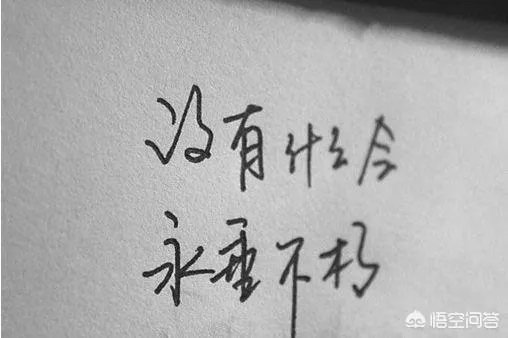 没有什么会
永垂不朽
悟空问答